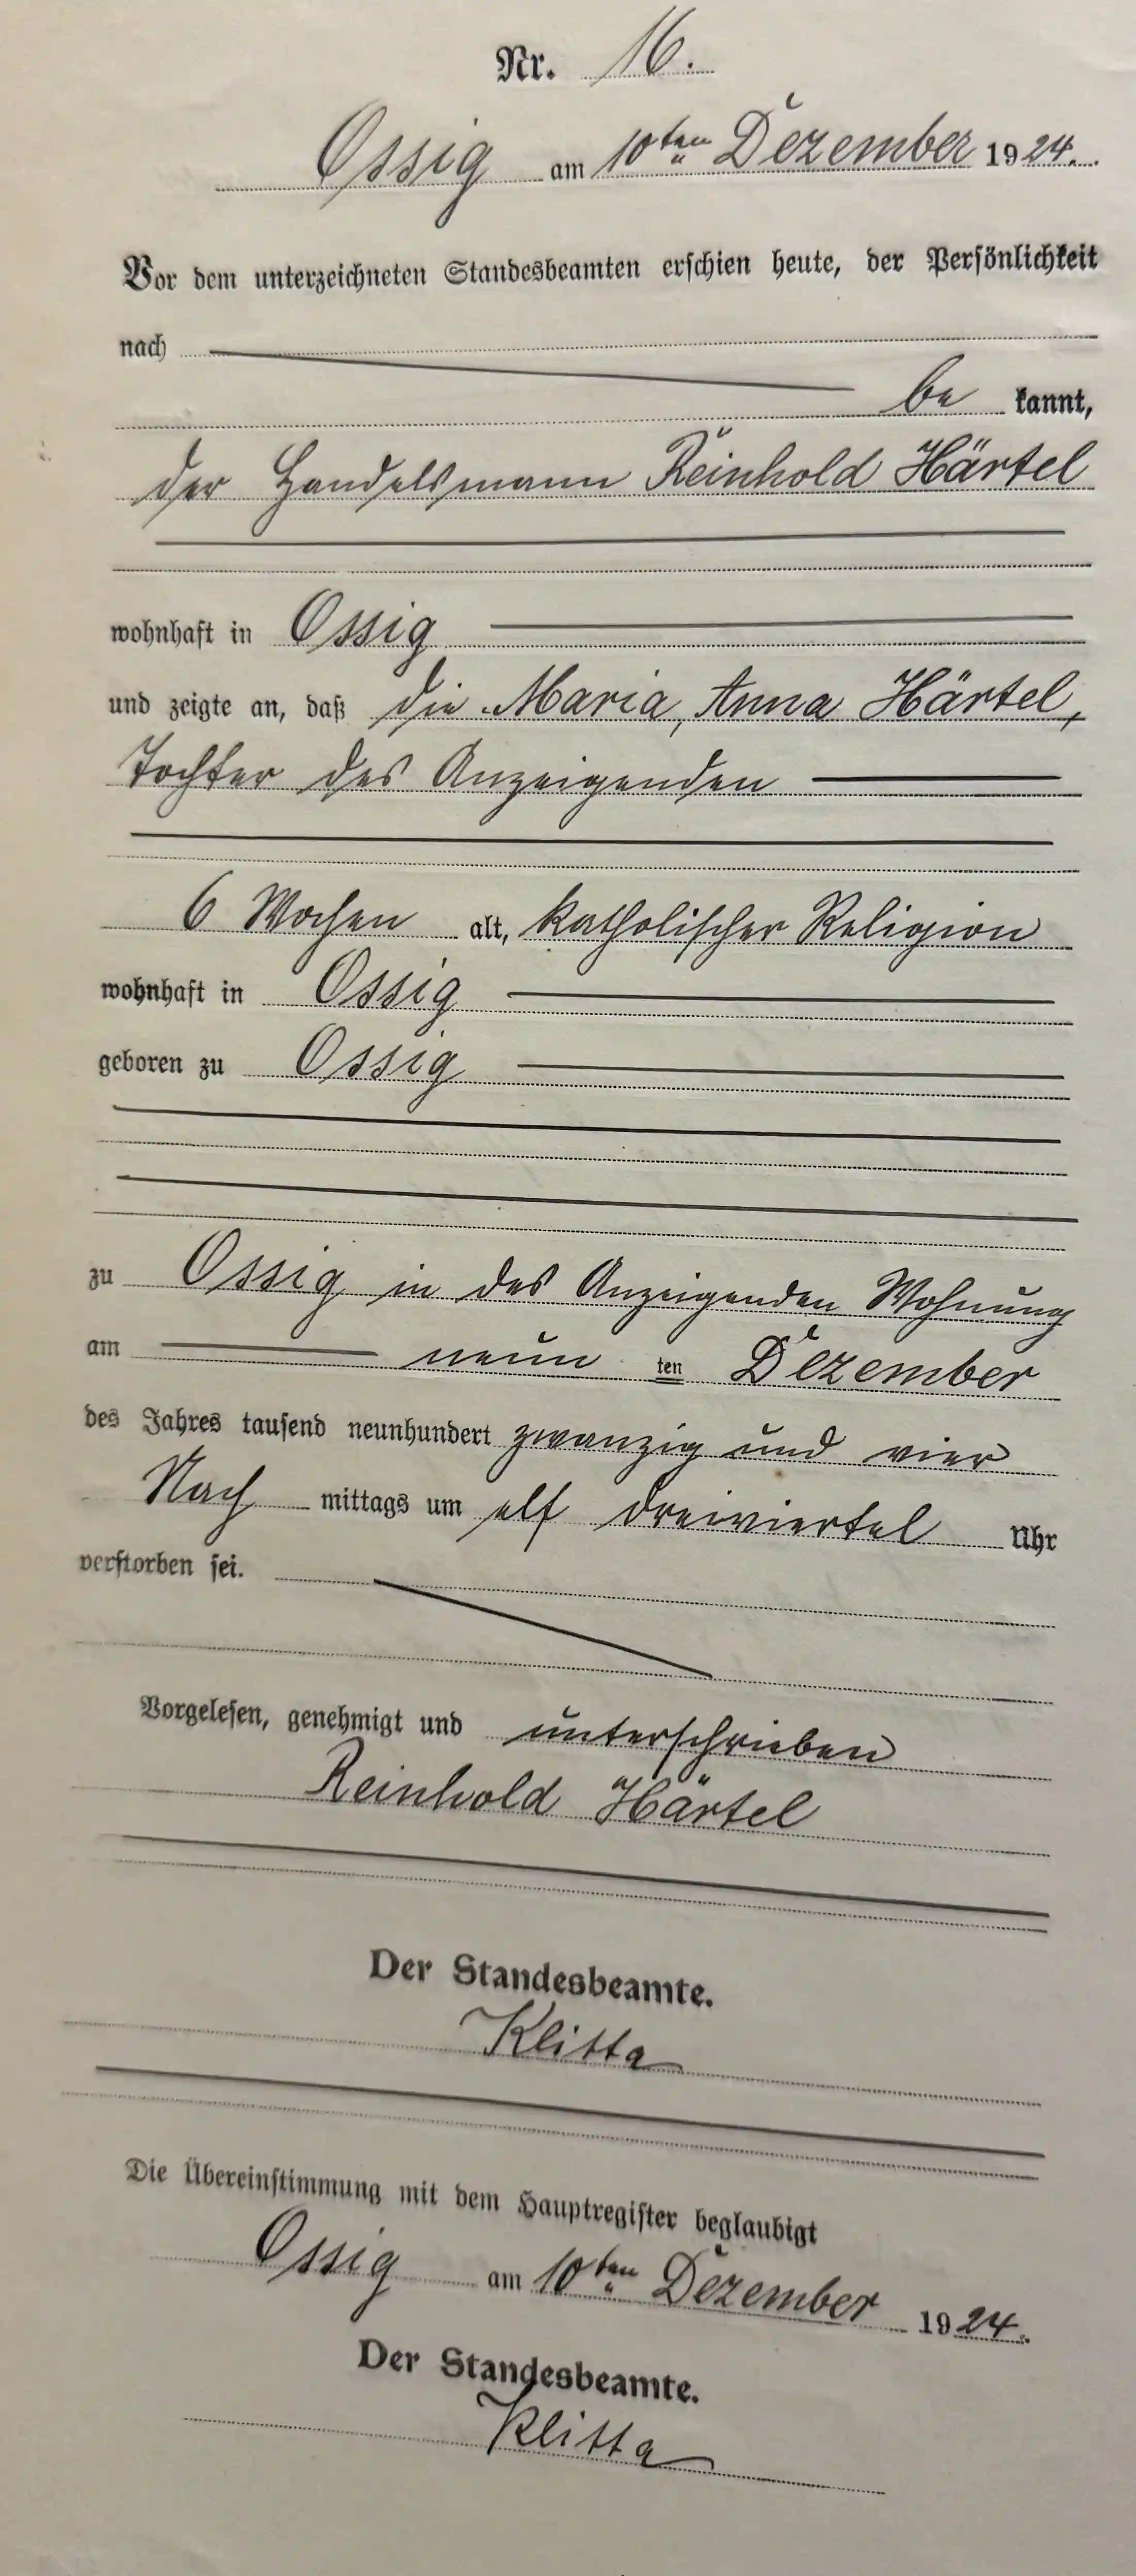 Nr. 16.
Ossig am 10ten Dezember 1924.
Vor dem unterzeichneten Standesbeamten erschien heute, der Persönlichkeit
nach
be kannt,
der Handelsmann Reinhold Härtel
wohnhaft in Ossig
und zeigte an, daß die Maria, Anna Härtel,
Tochter des Anzeigenden
6 Wochen alt, katholischer Religion
wohnhaft in Ossig
geboren zu Ossig
zu Ossig in des Anzeigenden Wohnung
am neun ten Dezember
des Jahres tausend neunhundert zwanzig und vier
Nach mittags um elf dreiviertel Uhr
verstorben sei.
Vorgelesen, genehmigt und unterschrieben
Reinhold Härtel
Der Standesbeamte.
Klitta
Die Übereinstimmung mit dem Hauptregister beglaubigt
Ossig am 10ten Dezember 1924.
Der Standesbeamte.
Klitta